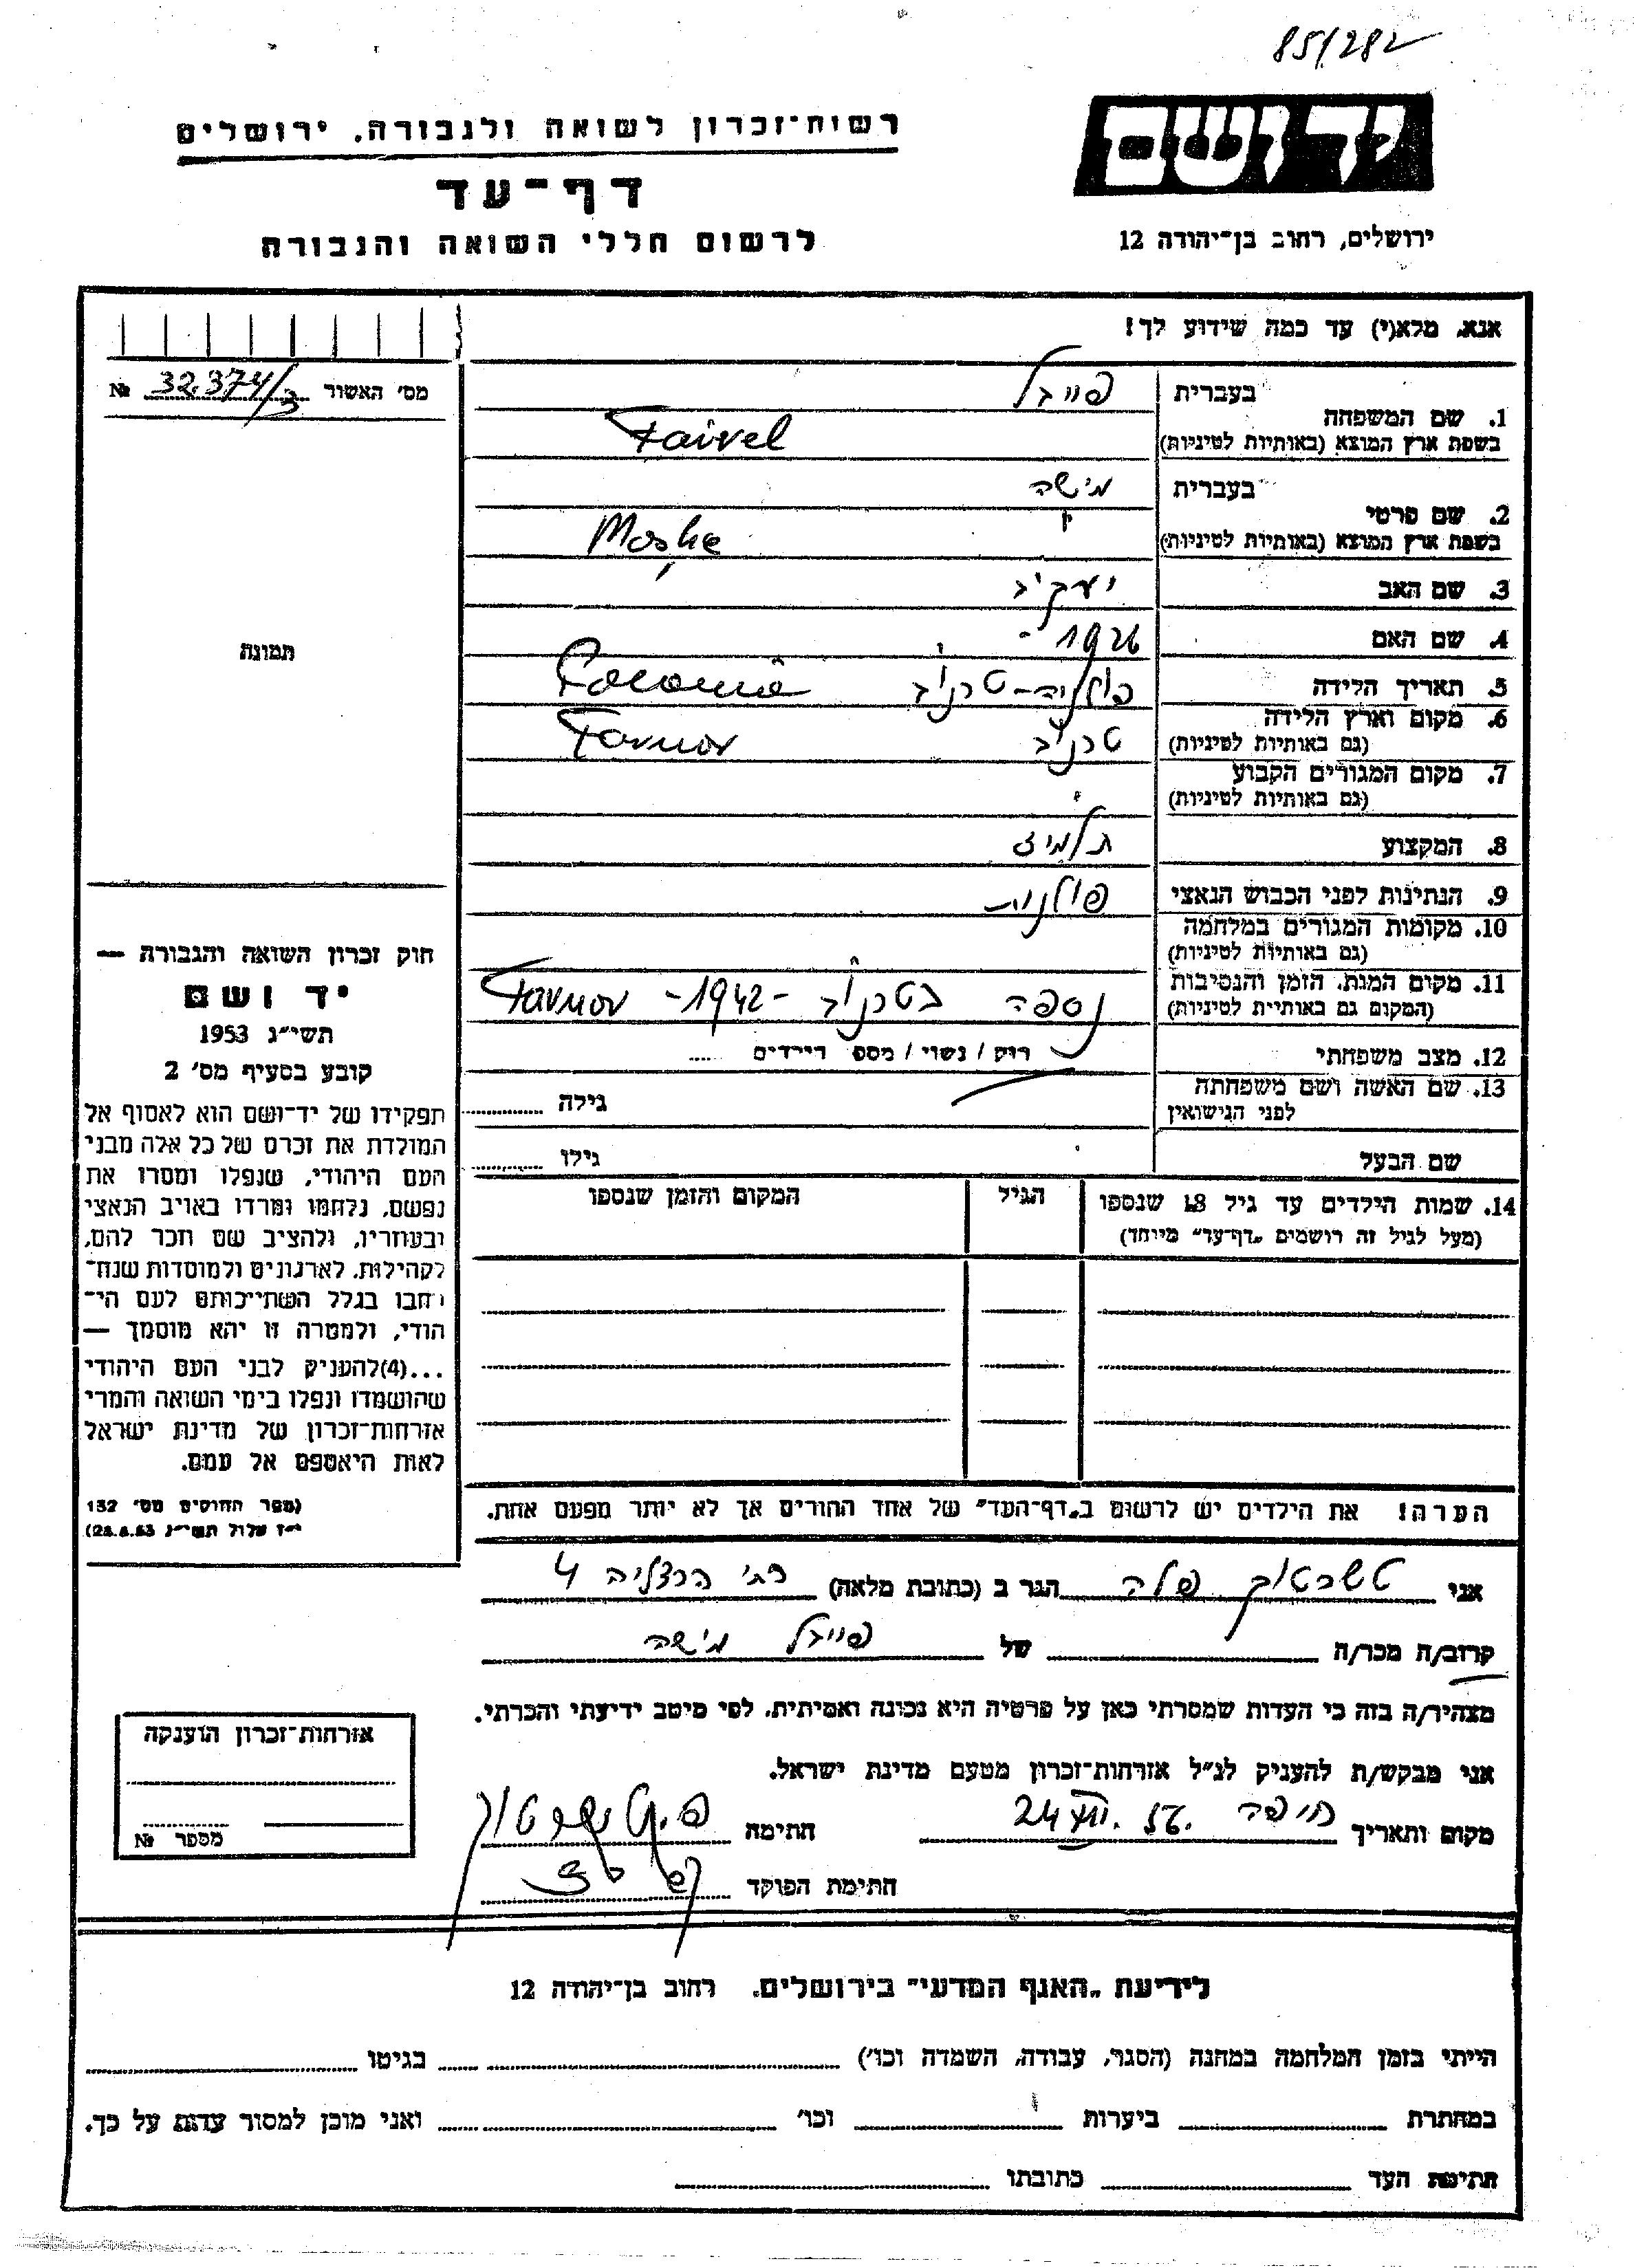 85/282
רשות-זכרון לשואה ולגבורה, ירושלים
דף-עד
לרשום חללי השואה והגבורה
יד ושם
ירושלים, רחוב בן-יהודה 12
אנא, מלא(י) עד כמה שידוע לך!
מס' האשור 32.374/3 №
1. שם המשפחה
בעברית פייבל
בשפת ארץ המוצא (באותיות לטיניות) Faivel
2. שם פרטי
בעברית מישה
בשפת ארץ המוצא (באותיות לטיניות) Moshe
3. שם האב יעקב
4. שם האם
5. תאריך הלידה 1926 -
6. מקום וארץ הלידה פולניה-טרנוב
(גם באותיות לטיניות)
7. מקום המגורים הקבוע טרנוב Tarnov
(גם באותיות לטיניות)
8. המקצוע תלמיד
9. הנתינות לפני הכבוש הנאצי פולנית
10. מקומות המגורים במלחמה
(גם באותיות לטיניות)
11. מקום המות, הזמן והנסיבות נספה בטרנוב -1942- Tarnov
(המקום גם באותיות לטיניות)
12. מצב משפחתי רוק / נשוי / מספ הילדים .....
13. שם האשה ושם משפחתה גילה
לפני הנישואין
שם הבעל גילו
14. שמות הילדים עד גיל 18 שנספו הגיל המקום והזמן שנספו
(מעל לגיל זה רושמים „דף-עד" מייוחד)
תמונה
חוק זכרון השואה והגבורה —
יד ושם
תשי״ג 1953
קובע בסעיף מס' 2
תפקידו של יד-ושם הוא לאסוף אל
המולדת את זכרם של כל אלה מבני
העם היהודי, שנפלו ומסרו את
נפשם, נלחמו ומרדו באויב הנאצי
ובעוזריו, ולהציב שם וזכר להם,
לקהילות, לארגונים ולמוסדות שנח־
רבו בגלל השתייכותם לעם הי־
הודי, ולמטרה זו יהא מוסמך —
...(4)להעניק לבני העם היהודי
שהושמדו ונפלו בימי השואה והמרי
אזרחות-זכרון של מדינת ישראל
לאות היאספם אל עמם.
(ספר החוקים מס' 132
י״ז אלול תשי״ג 28.8.53)
הערה! את הילדים יש לרשום ב„דף-העד" של אחד ההורים אך לא יותר מפעם אחת.
אני טשרטוב פלה הגר ב (כתובת מלאה) הרצליה 4
קרוב/ה מכר/ה של פייבל מישה
מצהיר/ה בזה כי העדות שמסרתי כאן על פרטיה היא נכונה ואמיתית, לפי מיטב ידיעתי והכרתי.
אני מבקש/ת להעניק לנ״ל אזרחות-זכרון מטעם מדינת ישראל.
מקום ותאריך חיפה 24 חתימה
חתימת הפוקד
אזרחות-זכרון הוענקה
מספר №
לידיעת „האגף המדעי" בירושלים. רחוב בן-יהודה 12
הייתי בזמן המלחמה במחנה (הסגר, עבודה, השמדה וכו') בגיטו
במחתרת ביערות וכו' ואני מוכן למסור עדות על כך.
חתימת העד כתובתו